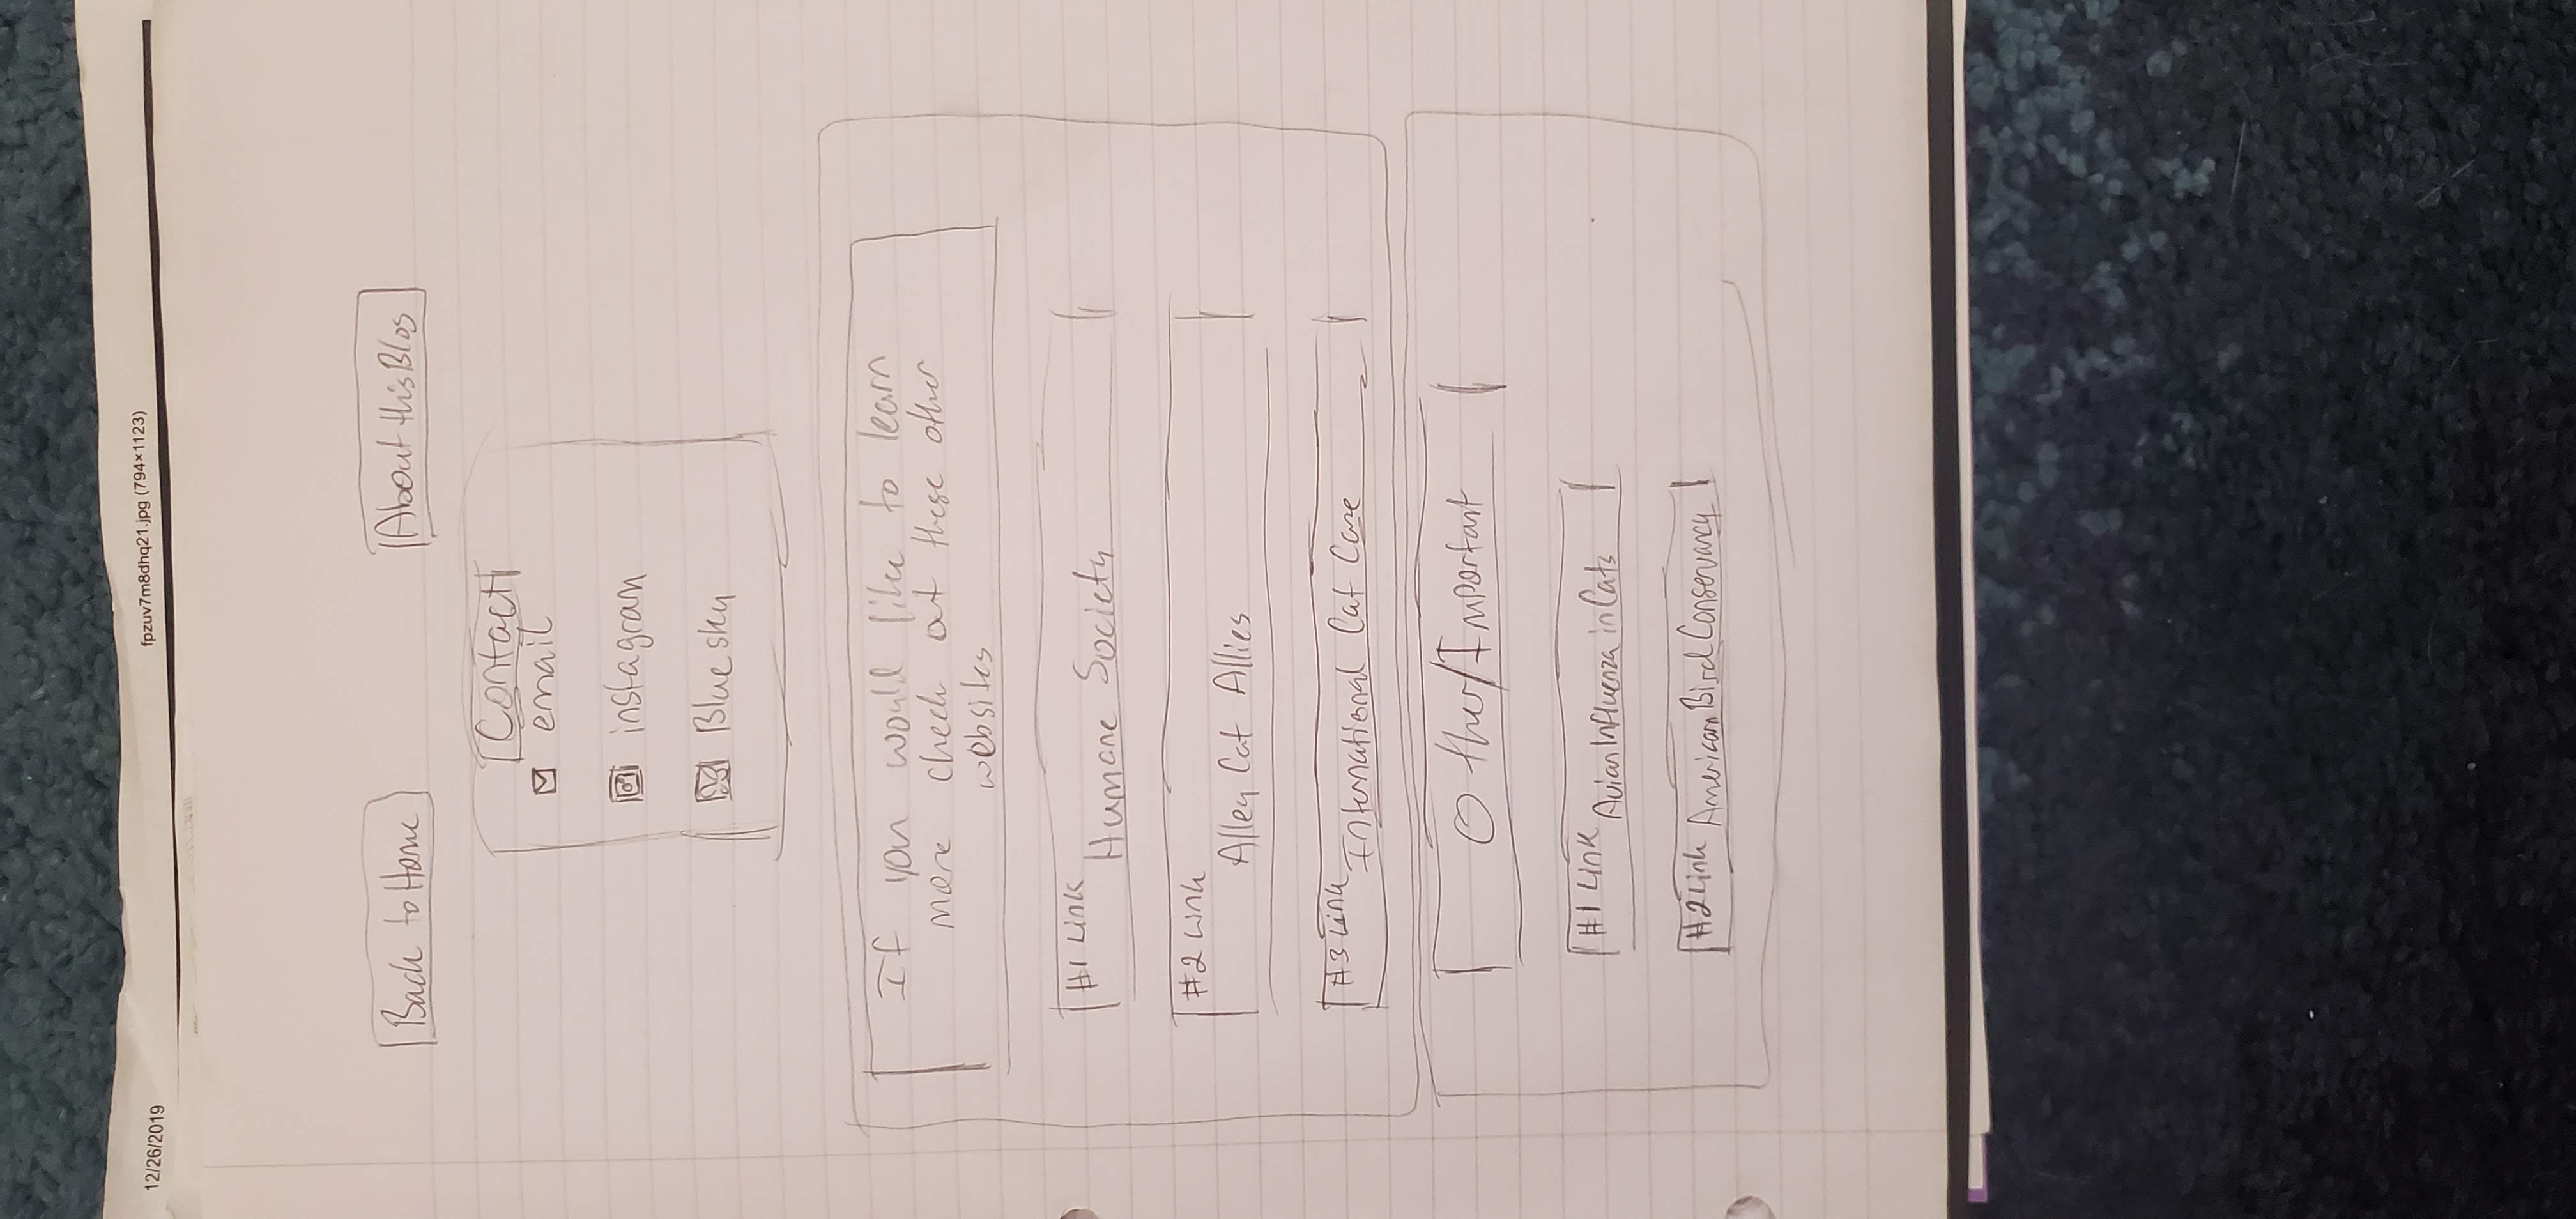 12/26/2019
fpzuv7m8dhq21.jpg (794×1123)
Back to Home
About this Blog
Contact
email
instagram
Blue sky
If you would like to learn
more check out these other
websites
#1 Link
Humane Society
#2 Link
Alley Cat Allies
#3 Link
International Cat Care
Other/Important
#1 Link Avian Influenza in Cats
#2 Link American Bird Conservancy